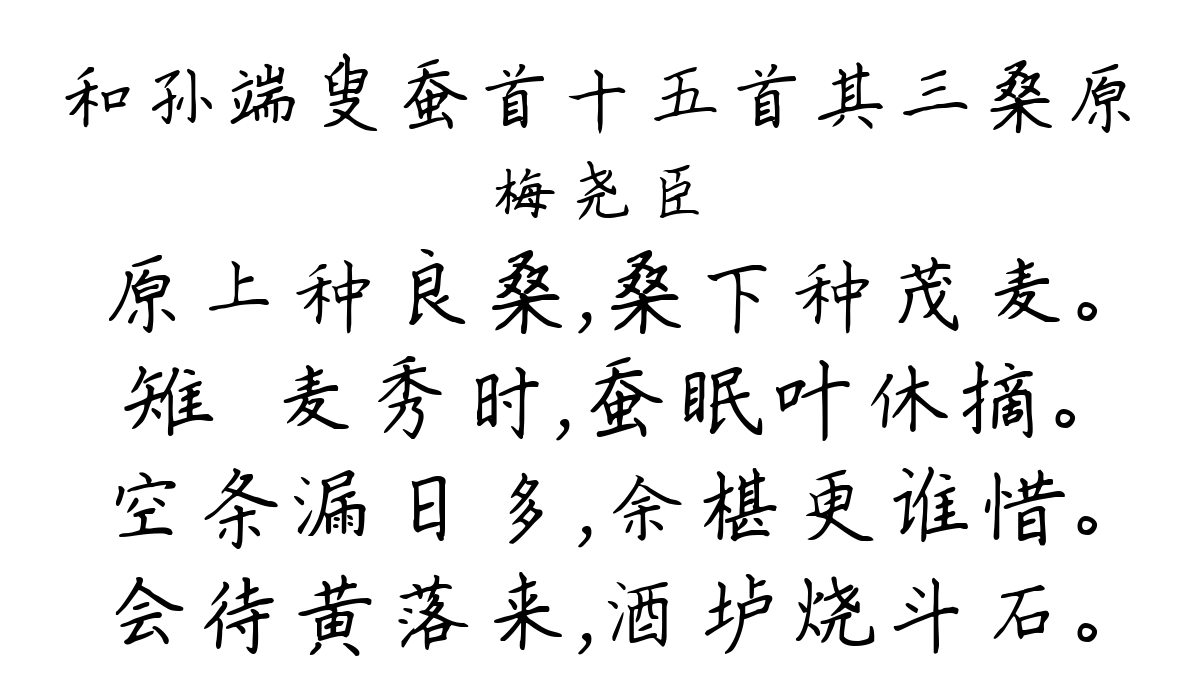 和孙端叟蚕首十五首其三桑原
梅尧臣
原上种良桑,桑下种茂麦。
雉 麦秀时,蚕眠叶休摘。
空条漏日多,余椹更谁惜。
会待黄落来,酒垆烧斗石。